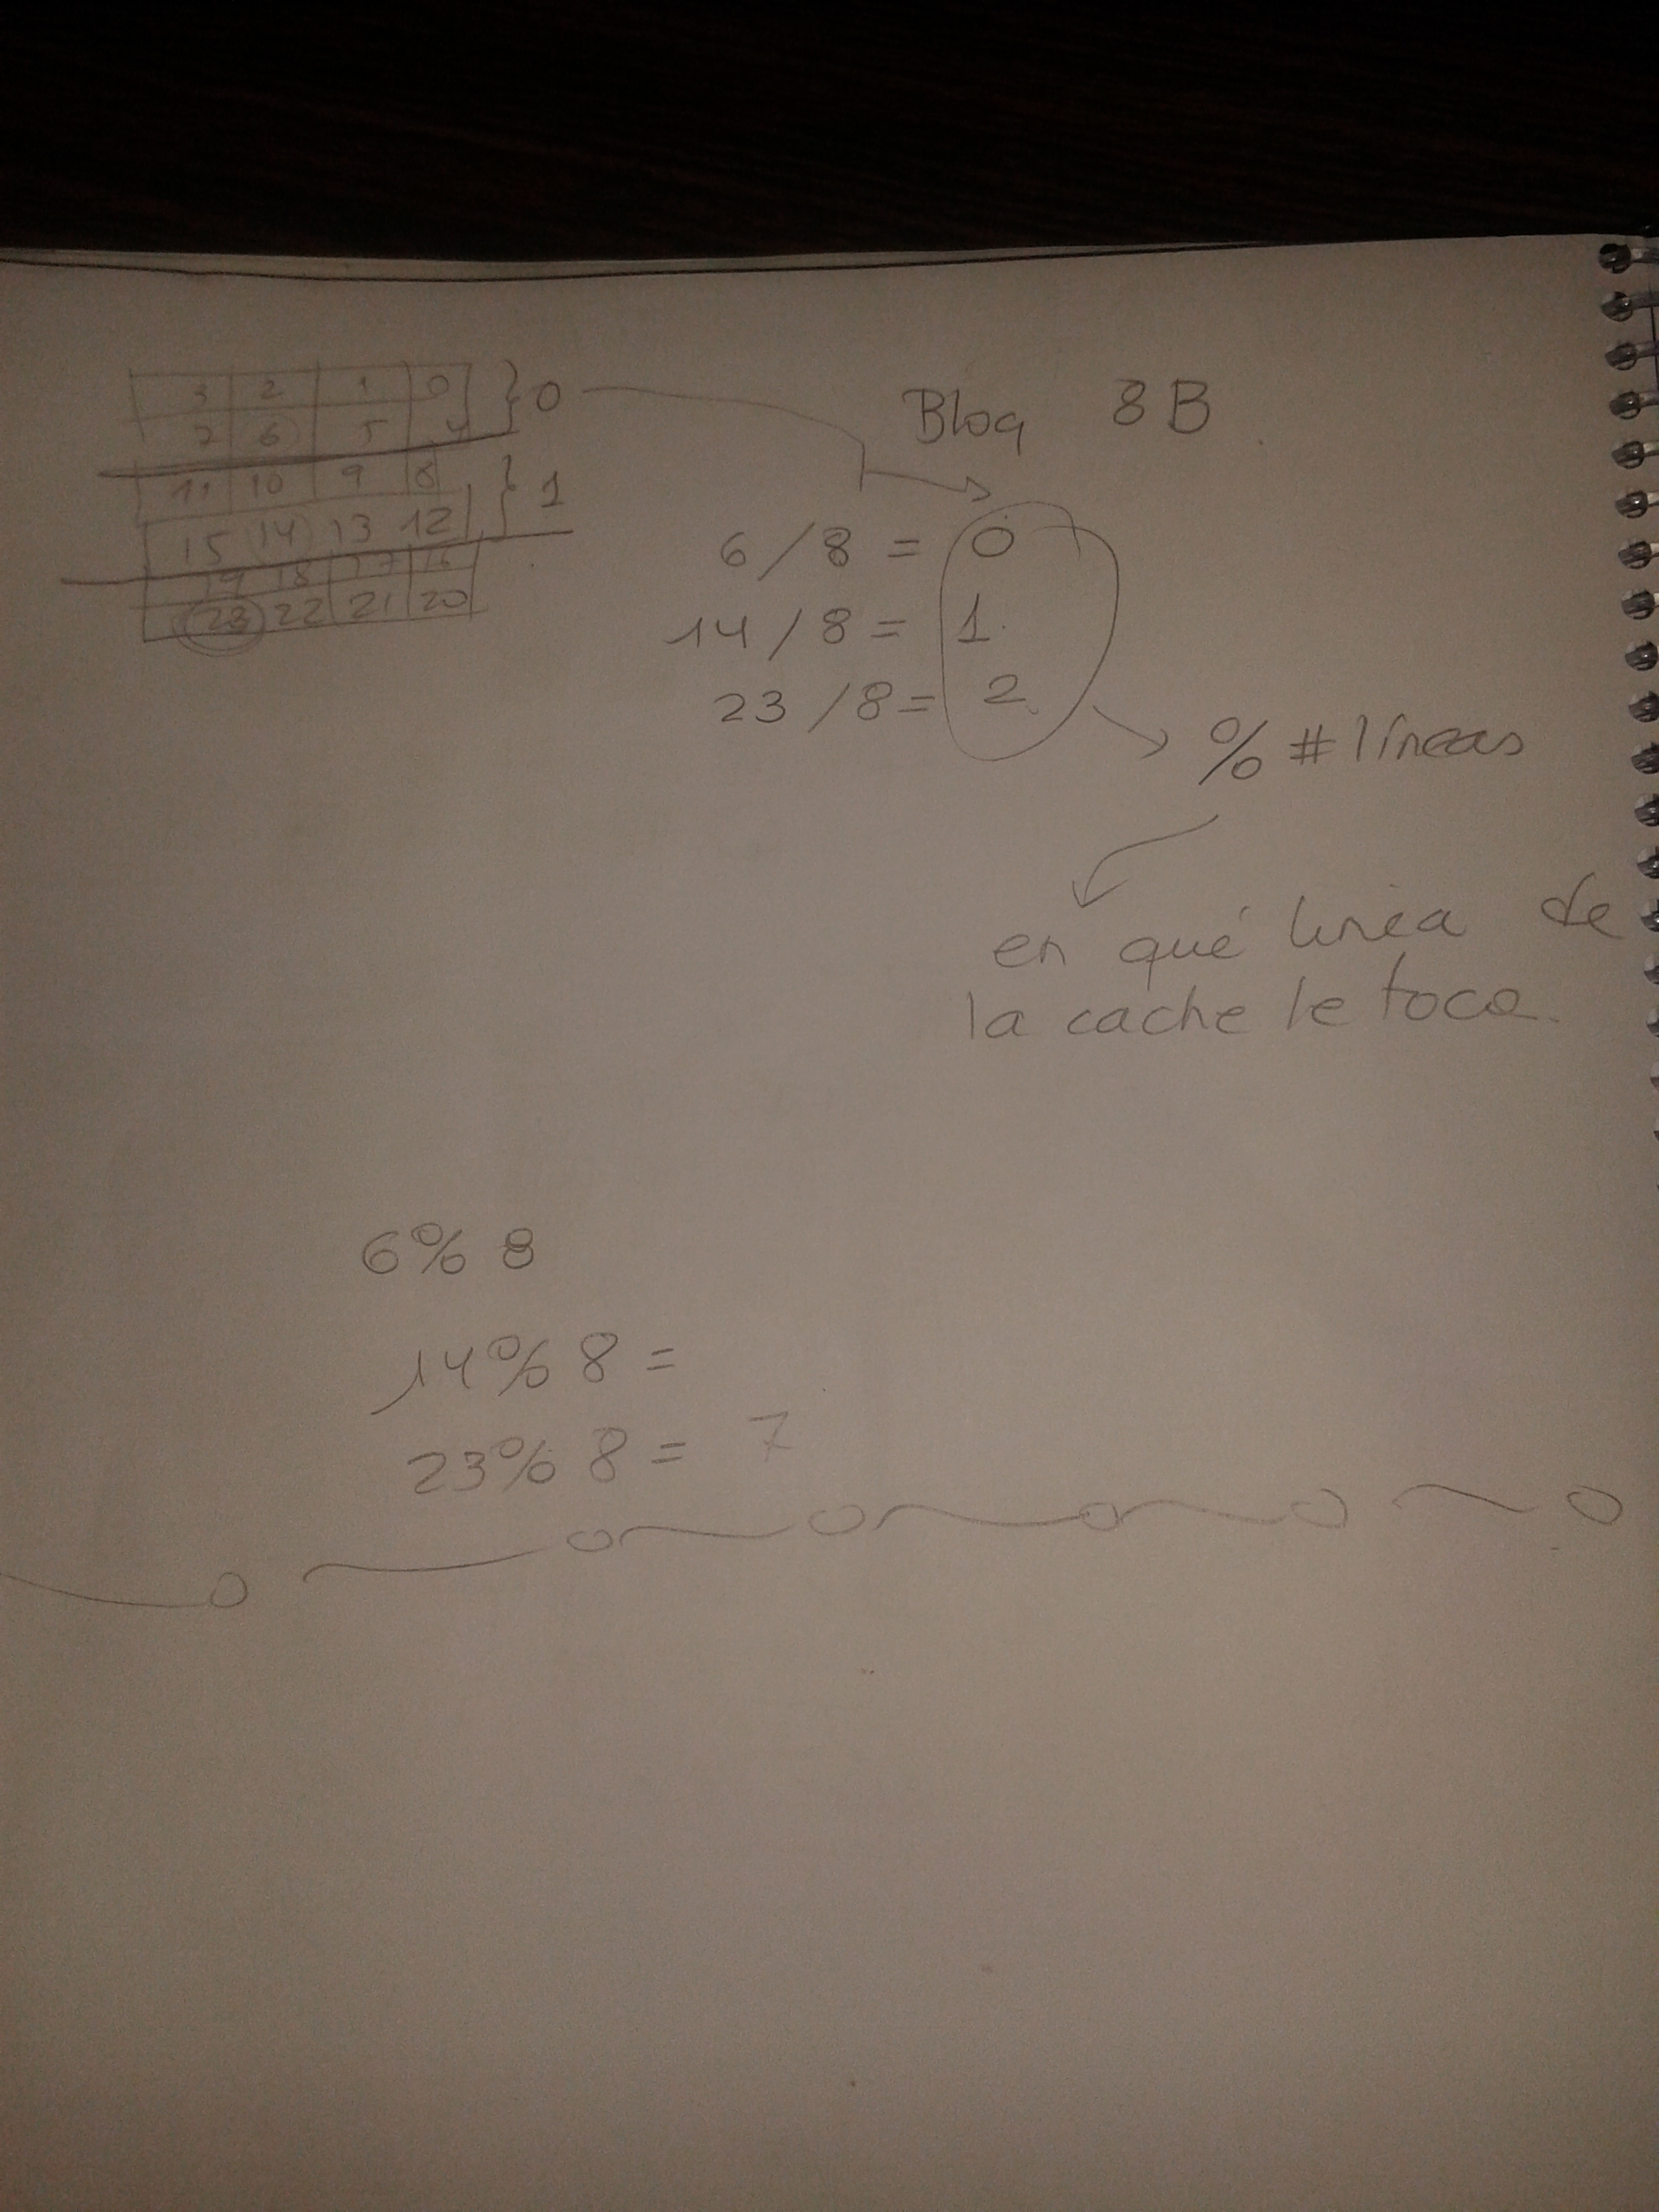 3 2 1 0 } 0
7 6 5 4
11 10 9 8 } 1
15 14 13 12
19 18 17 16
23 22 21 20
Bloq 8B
6/8 = 0
14/8 = 1
23/8 = 2
% # líneas
en qué línea de
la cache le toca.
6% 8
14% 8 =
23% 8 = 7